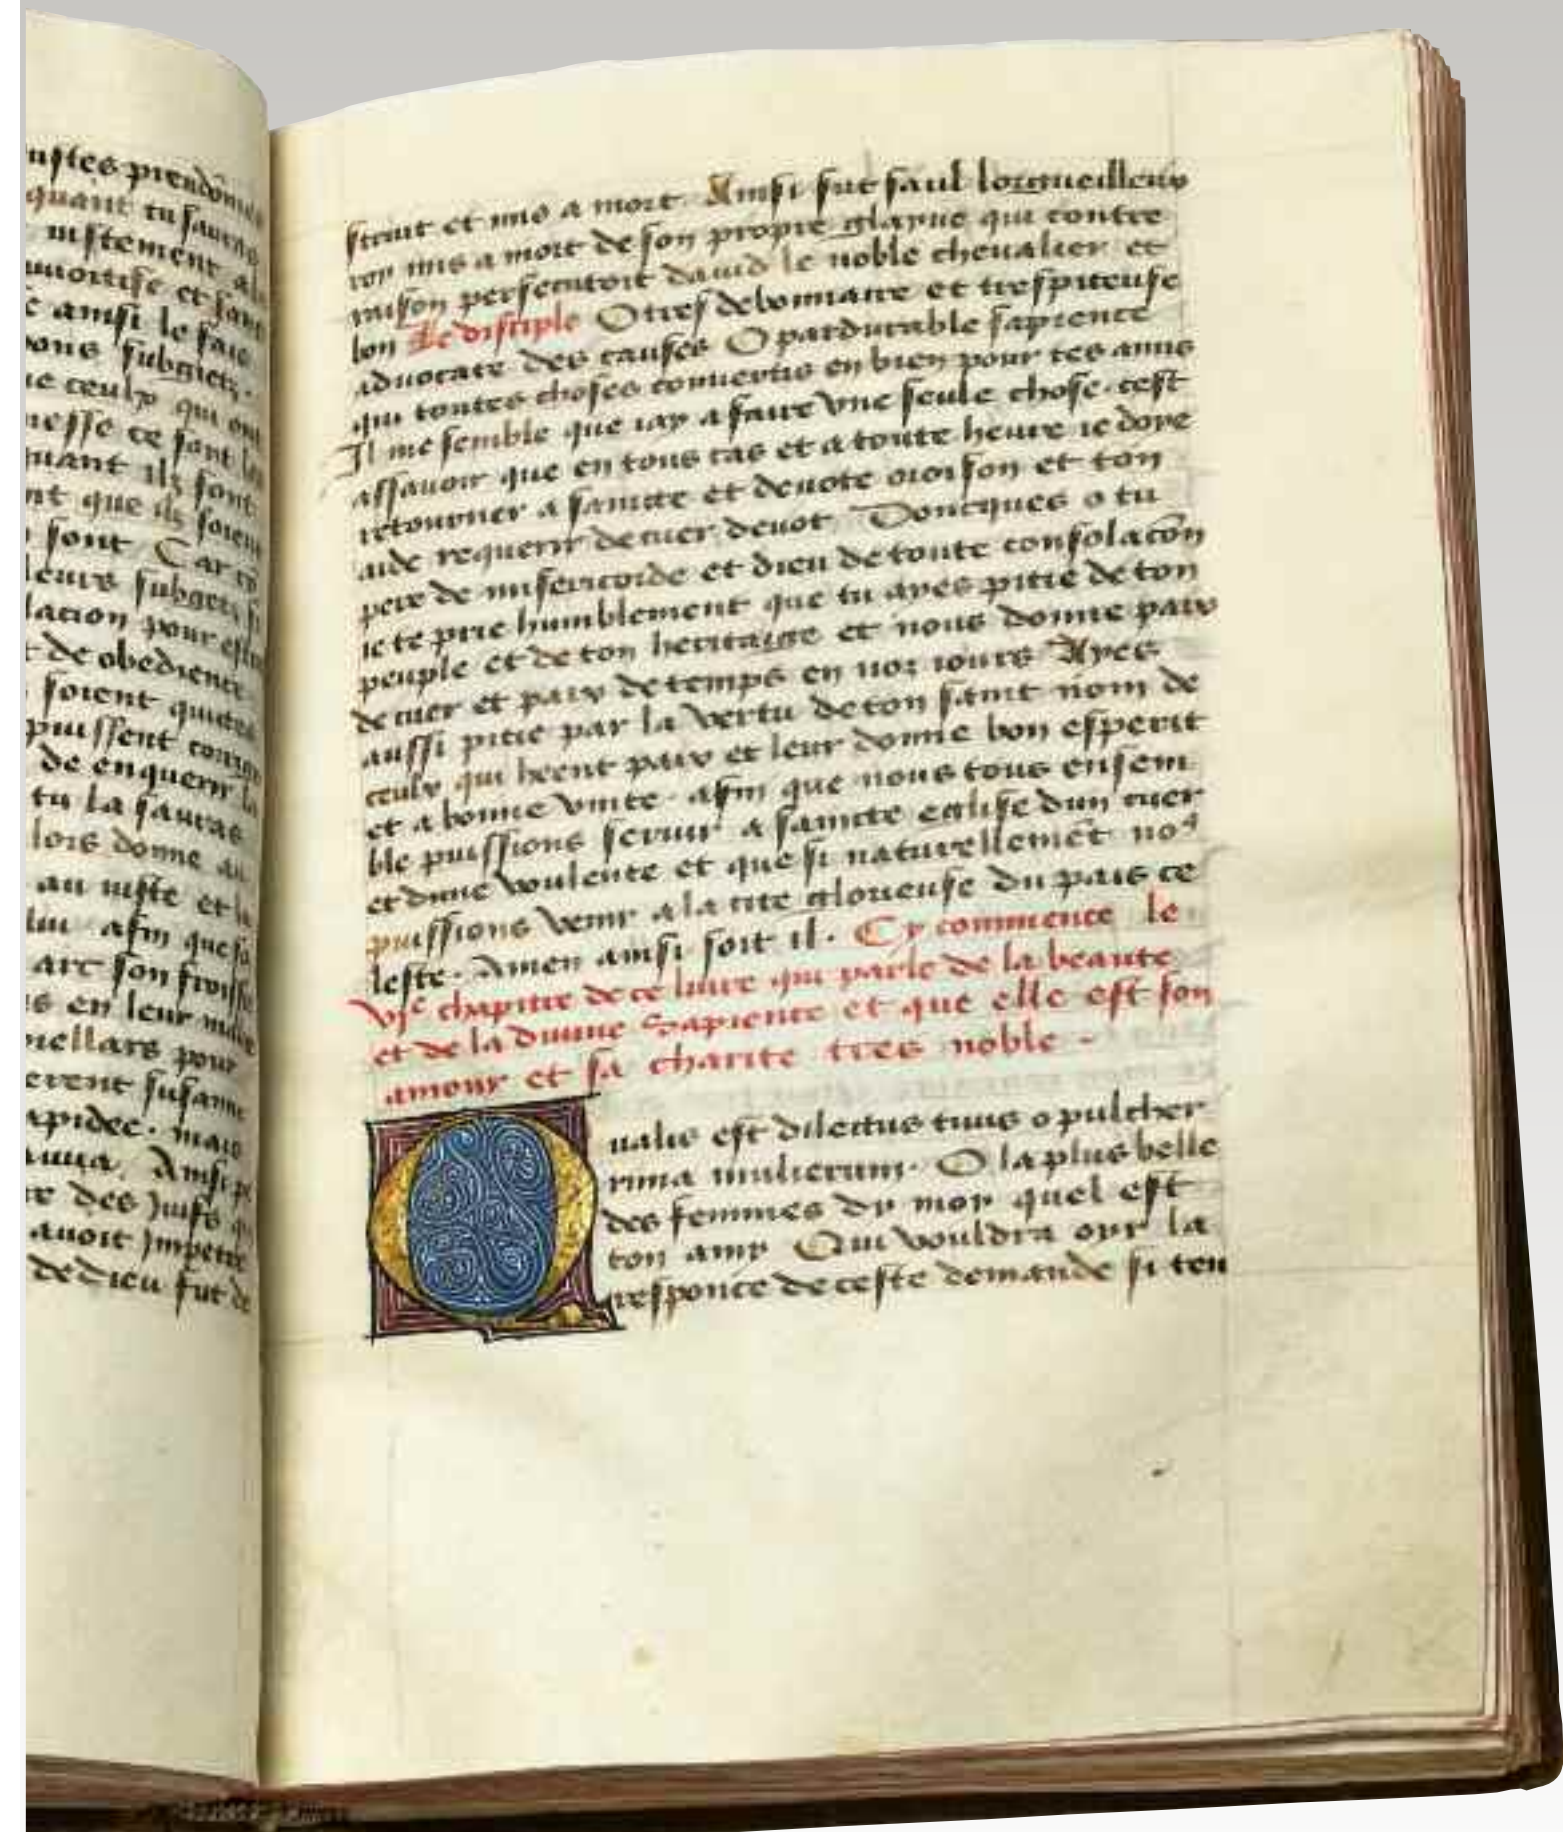 ustes preudom
quant tu sauras
iustement a
et sont
ainsi le fais
bons subgietz.
ceulx qui ont
messe ce sont les
quant ilz sont
nt que ilz soient
sont Car
leurs subgetz
lacion pour
de obedience
soient quictes
puissent
de enquerir la
tu la sauras
lors donne au
au iuste et la
lui afin que sa
arc son
s en leur
viellars pour
erent susanne
apidee. mais
Ainsi
te des Juifs
auoit Jmpetre
de dieu fut de
struit et mis a mort. Ainsi fut saul lorgueilleux
roy mis a mort de son propre glayue qui contre
raison persecutoit dauid le noble cheualier et
bon Le disciple O tres debonnaire et trespiteuse
aduocate des causes O pardurable sapience
qui toutes choses conuertis en bien pour tes amis
Il me semble que iay a faire vne seule chose. cest
assauoir que en tous cas et a toute heure ie doye
retourner a saincte et deuote oroison et ton
aide requerir de cuer deuot. Doncques o tu
pere de misericorde et dieu de toute consolacōn
ie te prie humblement que tu ayes pitie de ton
peuple et de ton heritaige et nous donne paix
de cuer et paix de temps en noz iours Ayes
aussi pitie par la vertu de ton saint nom de
ceulx qui heent paix et leur donne bon esperit
et a bonne vnite. afin que nous tous ensem
ble puissions seruir a saincte eglise dun cuer
et dune voulente et que si naturellemēt noꝰ
puissions venir a la cite glorieuse du pais ce
leste. Amen ainsi soit il. Cy commence le
vjᵉ chapitre de ce liure qui parle de la beaute
et de la diuine Sapience et que elle est son
amour et sa charite tres noble.
Qualis est dilectus tuus o pulcher
rima mulierum. O la plus belle
des femmes dy moy quel est
ton amy Qui vouldra oyr la
responce de ceste demande si ten